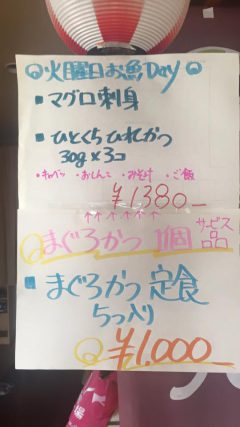 火曜日お魚Day
■ マグロ刺身
■ ひとくちひれかつ
30g×3コ
・キャベツ ・おしんこ ・みそ汁 ・ご飯
¥1380-
↑↑↑↑↑↑
まぐろかつ 1個 サービス品
■ まぐろかつ定食
5っ入り
¥1,000-